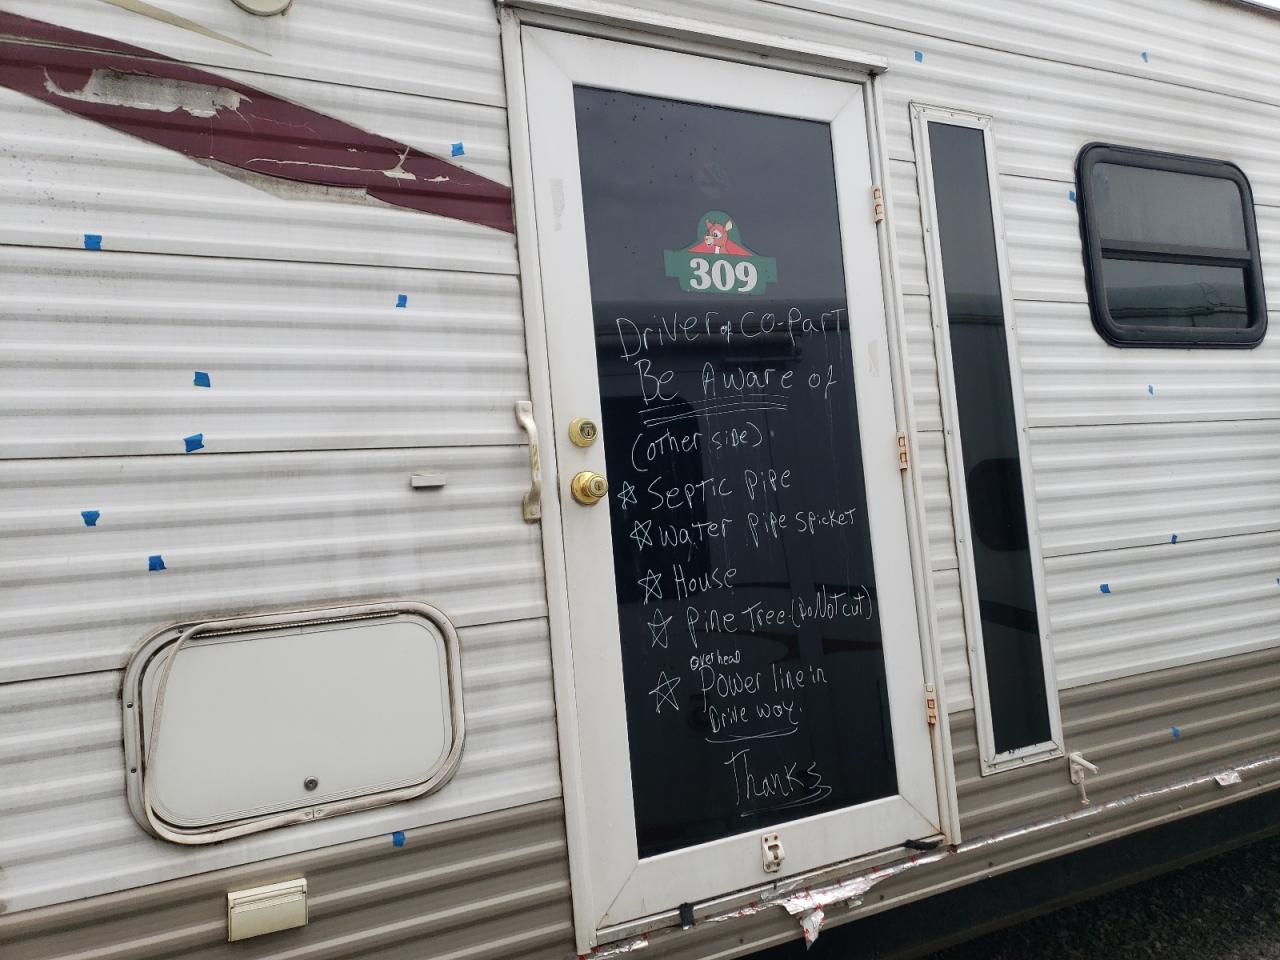 309
Driver of CO-Part
Be Aware of
(other side)
Septic pipe
water pipe spicket
House
Pine Tree (Do Not cut)
overhead
Power line in
Drive way.
Thanks